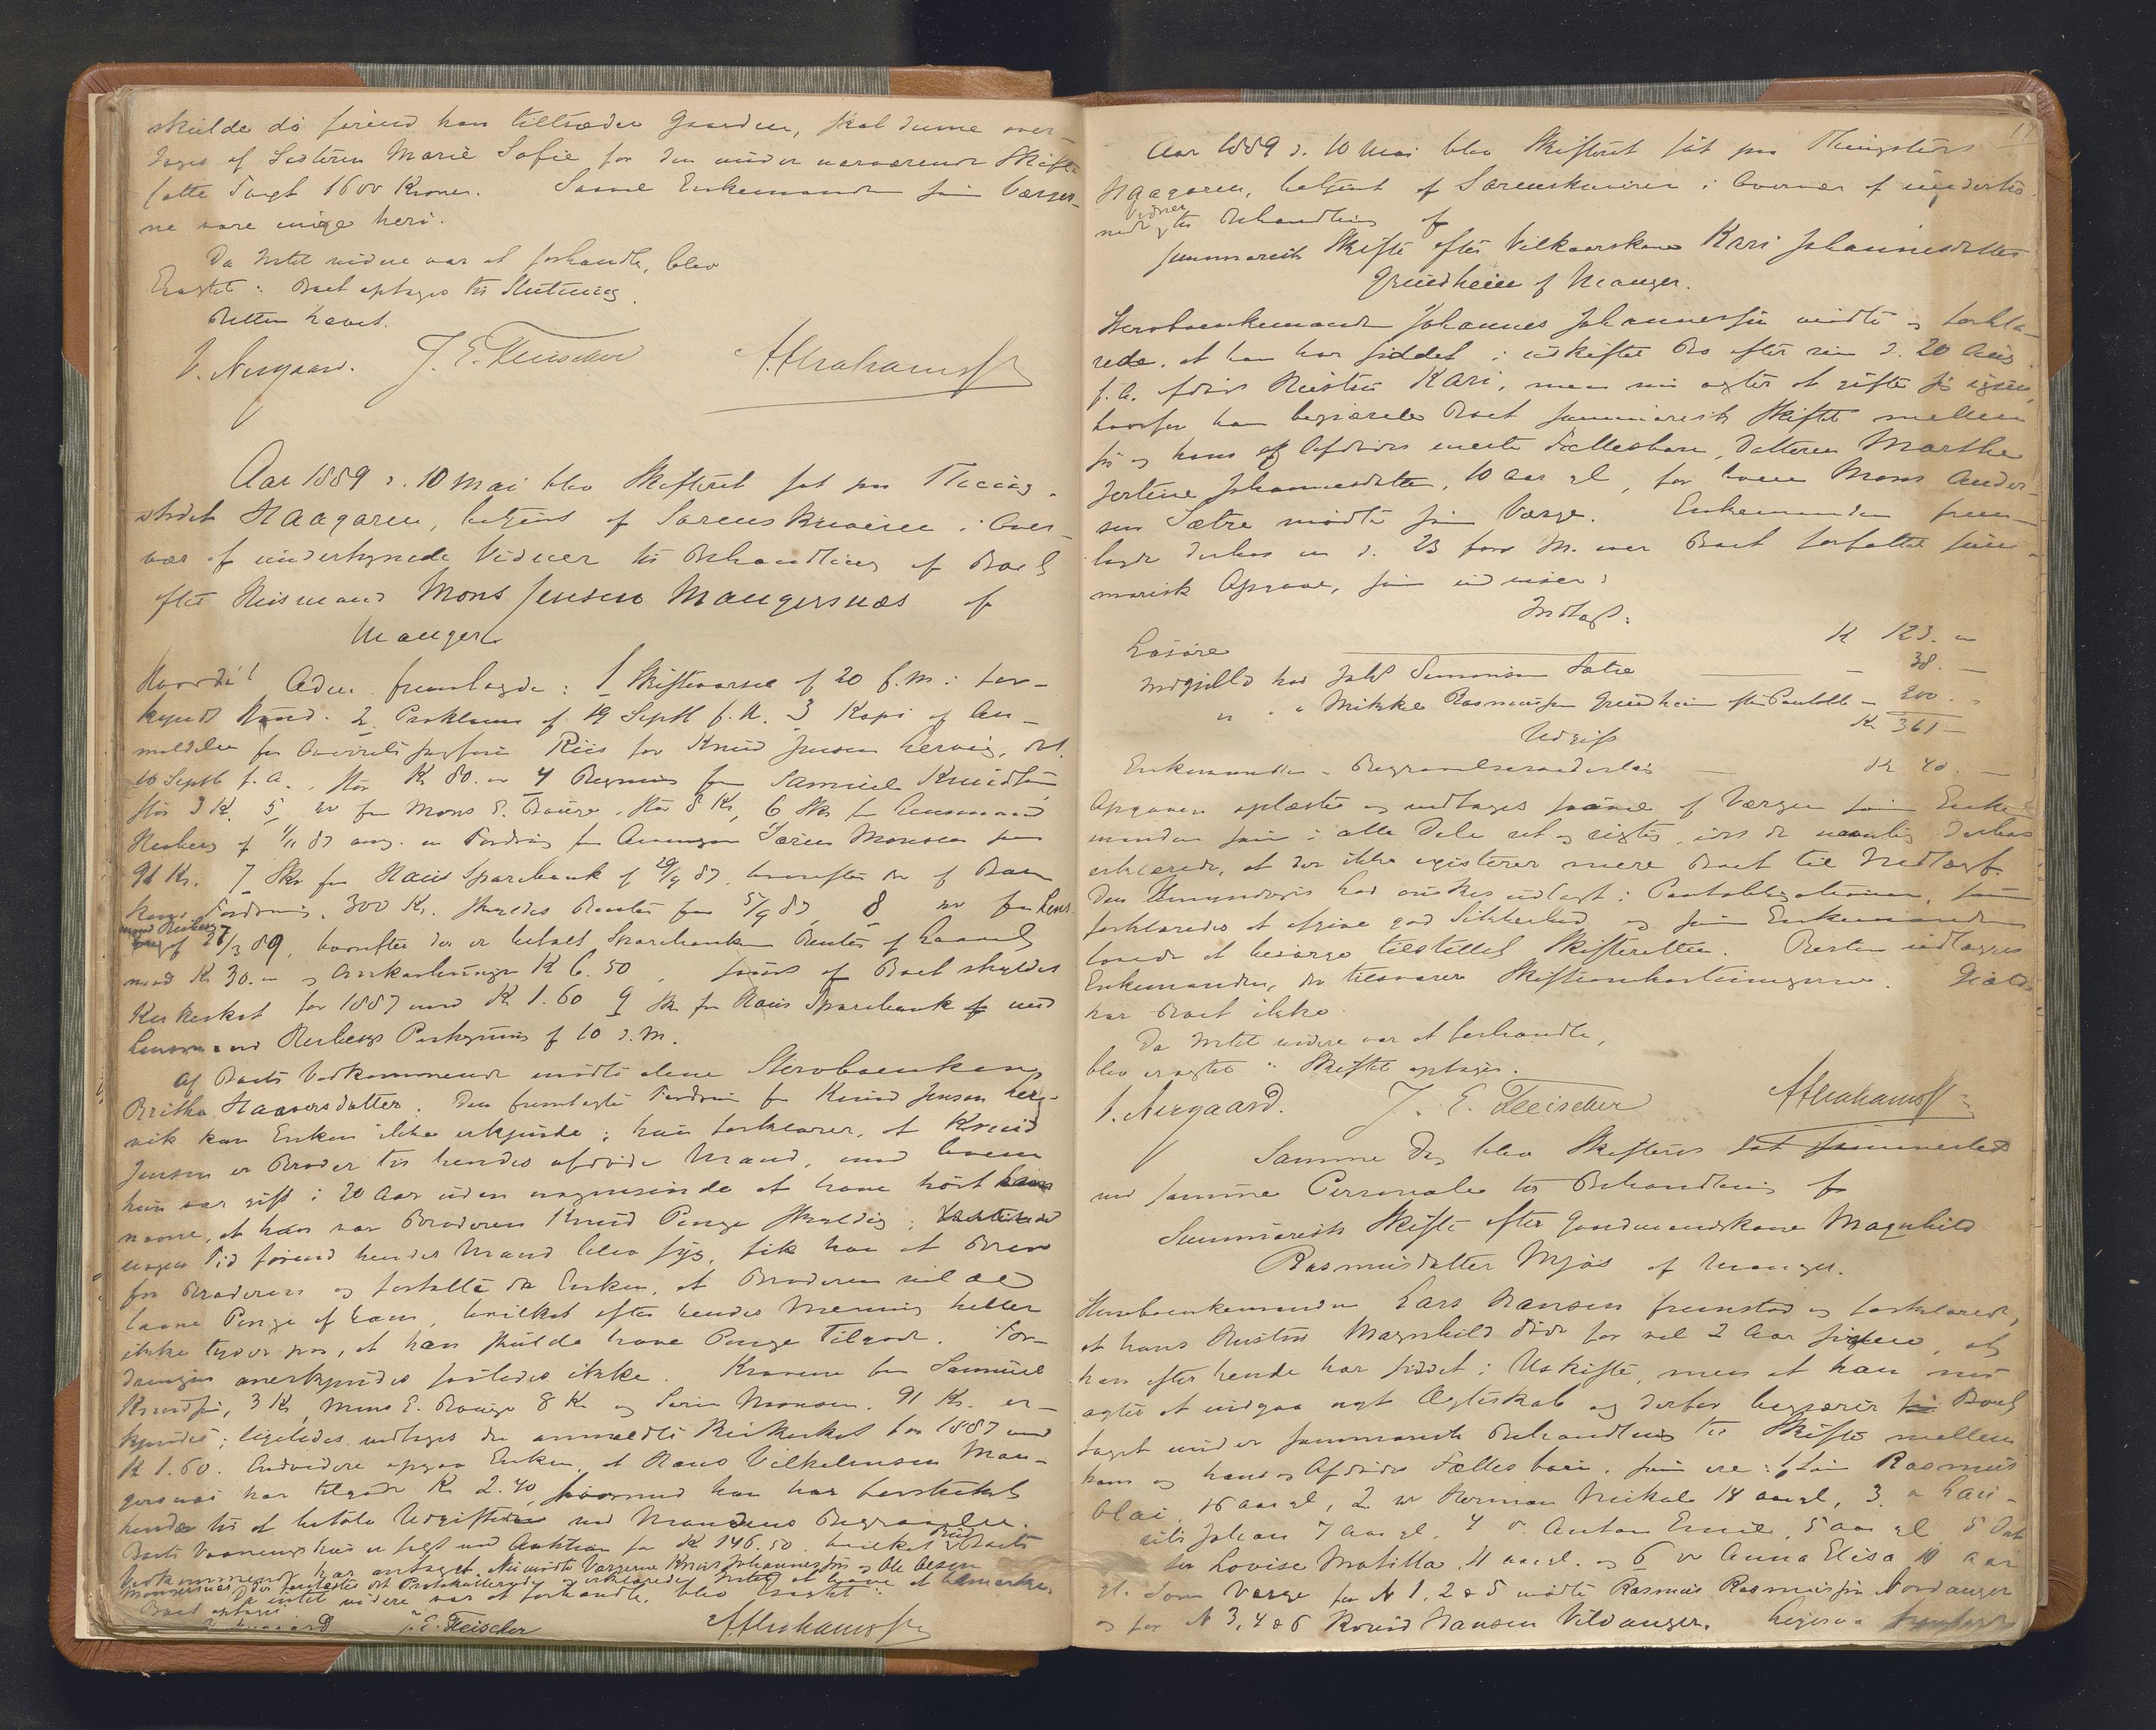 skulde dø førend han tiltræder Gaarden, skal denne over-
tages af Søsteren Marie Sofie for den under nærværende Skifte
satte Taxt 1600 Kroner. Saavel Enkemanden som Værger-
ne vare enige heri.
Da Intet videre var at forhandle, blev
Eragtet: Boet optages til Slutning.
Retten hævet.
J. E. Fleischer
Aar 1889 d. 10 Mai blev Skifteret sat paa Thing-
stedet Haagaren, betjent af Sorenskriveren i Over-
vær af undertegnede Vidner til Behandling af Boet
efter Husmand Mons Jensen Mangersnæs af
Manger
Hvorda! Adm. fremlagde: 1 Skiftevarsel af 20 f. M. i for-
kyndt Stand. 2 Proklama af 19 Septb f. A. 3 Kopi af An-
meldelse fra Overretssagfører Riis for Knud Jensen Hervig, dat.
10 Septb f. A., stor Kr 80. 4 Regning fra Samuel Knudsen,
stor 3 Kr. 5 fra Mons E. Bouge, stor 8 Kr, 6 Skr fra Lensmand
Herberg af 1/11 87 ang. en Fordring fra Søren Monsen paa
91 Kr. 7 Skr fra Haus Sparebank af 29/9 87, hvorefter der af Boen
Fordring, 300 Kr. skyldes Renter fra 5/9 87, 8 fra Lens-
mand Herberg
af 27/3 89, hvorefter der er betalt Sparebanken Renter
med Kr 30. og Omkostninger Kr 6.50, af Boet skyldes
Kirkeskat for 1887 med Kr 1.60 9 Skr fra Haus Sparebank med
Lensmand Herbergs Paategning af 10 d. M.
Af Boets Vedkommende mødte alene Stervboenken
Britha Haaversdatter. Den fremlagte Fordring fra Knud Jensen Her-
vik kan Enken ikke erkjende; hun forklarer, at Knud
Jensen er Broder til hendes afdøde Mand, med hvem
hun var gift i 20 Aar uden nogensinde at have hørt ham
nævne, at han var Broderen Knud Penge skyldig;
nogen Tid førend hendes Mand blev syg, fik han et Brev
fra Broderen og fortalte da Enken, at Broderen vilde
laane Penge af ham, hvilket efter hendes Mening heller
ikke tyder paa, at han skulde have Penge Tilgode. For-
dringen anerkjendes saaledes ikke. Kravene fra Samuel
Knudsen, 3 Kr, Mons E. Bouge 8 Kr og Søren Monsen 91 Kr. er-
kjendes; ligeledes vedtages den anmeldte Kirkeskat for 1887 med
Kr 1.60. Endvidere opgav Enken, at Hans Vilhelmsen Man-
gersnæs har tilgode Kr 2.40, som han har forstrakt
hende til at betale Udgifterne ved Mandens Begravelse.
Boets Vaaningshus er solgt ved Auktion for Kr 146.50, hvilket Bud Boets
Vedkommende har antaget. Nu mødte Værgerne Knud Johannessøn og Ole Olsen
Monsersnæs der forelæstes det Protokollerede og erklærede Intet at have at bemærke.
Da intet videre var at forhandle, blev Eragtet:
Boet optages
J. E. Fleischer
17
Aar 1889 d. 10 Mai blev Skifteret sat paa Thingstedet
Haagaren, betjent af Sorenskriveren i Overvær af underteg-
nede Vidner til Behandling af
summarisk Skifte efter Vilkaarskone Kari Johannesdatter
Grundheim af Manger.
Stervboenkemanden Johannes Johannessøn mødte og forkla-
rede, at han har siddet i uskiftet Bo efter sin d. 20 Aug
f. A. afdøde Hustru Kari, men nu agter at gifte sig igjen,
hvorfor han begjærede Boet summarisk skiftet mellem
sig og hans og Afdødes eneste Fællesbarn, Datteren Marthe
Jertine Johannesdatter, 10 Aar gl, for hvem Mons Ander-
sen Sætre mødte som Værge. Enkemanden frem-
lagde derhos en d. 23 forr. M. over Boet forfattet sum-
marisk Opgave, som udviser:
Indtægt:
Løsøre K 123. "
Indgjæld hos Johs Simonsen Sætre — 38. —
" " " Mikkel Rasmussøn Grundheim efter Pantobl — 200. "
Kr 361 —
Udgift
Enkemanden i Begravelsesudlæg — Kr 40. —
Opgaven oplæstes og vedtages saavel af Værgen som Enke-
manden som i alle Dele ret og rigtig, idet de nemlig derhos
erklærede, at der ikke existerer mere Boet til Indtægt.
Den Umyndiges Lod ønskes udlagt i Pantobligationen, som
forklaredes at afgive god Sikkerhed og som Enkemanden
lovede at besørge tilstillet Skifteretten. Resten udlægges
Enkemanden, der tilsvarer Skifteomkostningerne. Gjæld
har Boet ikke.
Da Intet videre var at forhandle,
blev eragtet: Skiftet optages.
J. E. Fleischer
Samme Dag blev Skifteret sat sammesteds
med samme Personale til Behandling af
Summarisk Skifte efter Gaardmandskone Magnhild
Rasmusdatter Mjøs af Manger.
Stervboenkemanden Lars Hansen fremstod og forklarede,
at hans Hustru Magnhild døde for vel 2 Aar siden, at
han efter hende har siddet i Uskifte, men at han nu
agter at indgaa nyt Ægteskab og derfor begjærer Boet
taget under summarisk Behandling til Skifte mellem
ham og hans og Afdødes Fællesbørn, som ere: 1, Søn Rasmus
Olai, 16 aar gl, 2. Herman Mikal 14 aar gl, 3. " Lau-
rits Johan 7 aar gl, 4 Anton Emil, 5 aar gl 5 Dat-
ter Lovise Matilla, 11 aar gl. og 6 Anna Elisa 10 aar
gl. Som Værge for N 1, 2 & 5 mødte Rasmus Rasmussøn Nordanger
og for N 3, 4 & 6 Knud Hansen Vildanger. Ligesaa fremlagdes